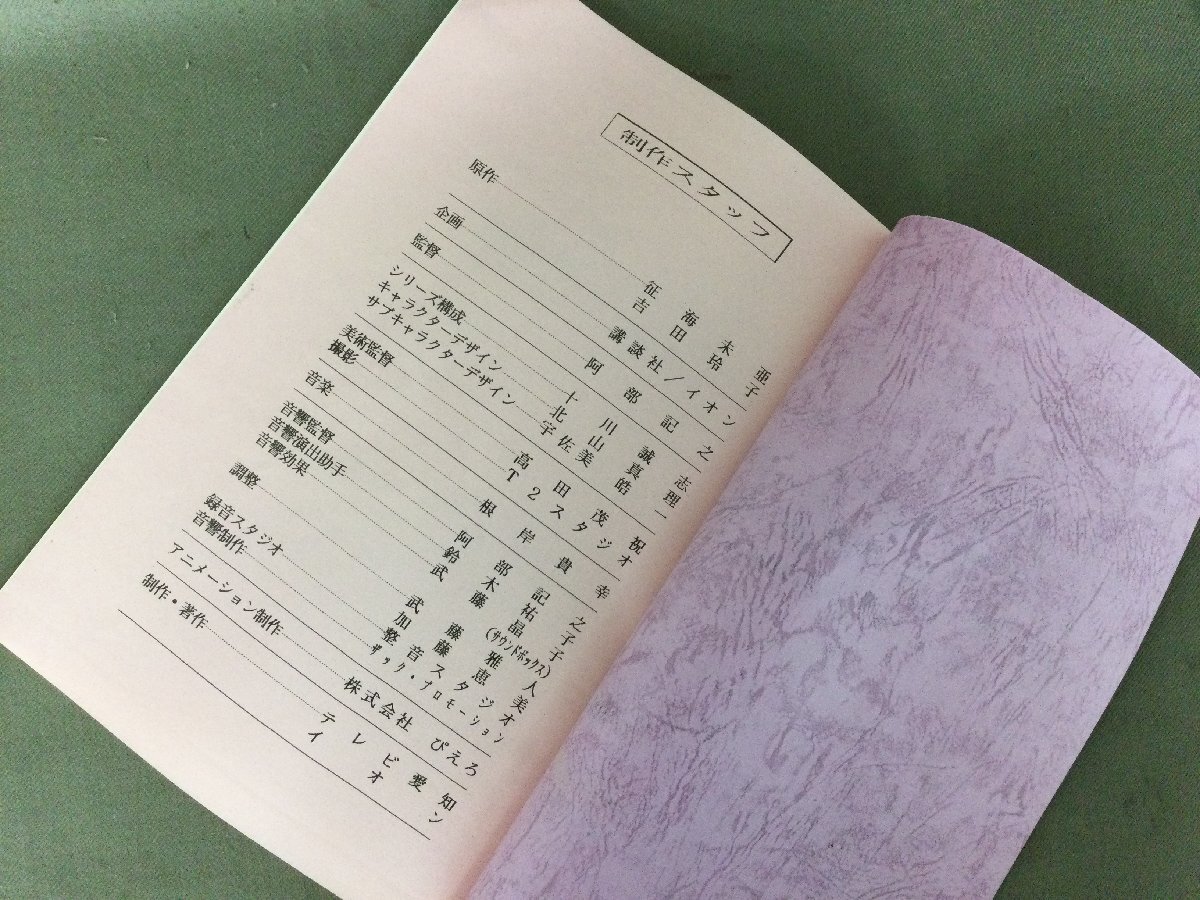 制作スタッフ
原作 征海未亜
吉田玲子
企画 講談社/イオン
監督 阿部記之
シリーズ構成 十川誠志
キャラクターデザイン 北山真理
サブキャラクターデザイン 宇佐美皓一
美術監督 高田茂祝
撮影 T2スタジオ
音楽 根岸貴幸
音響監督 阿部記之
音響演出助手 鈴木祐子
音響効果 武藤晶子(サウンドボックス)
調整 武藤雅人
加藤恵美
録音スタジオ 整音スタジオ
音響制作 ザック・プロモーション
アニメーション制作 株式会社 ぴえろ
制作・著作 テレビ愛知
イオン